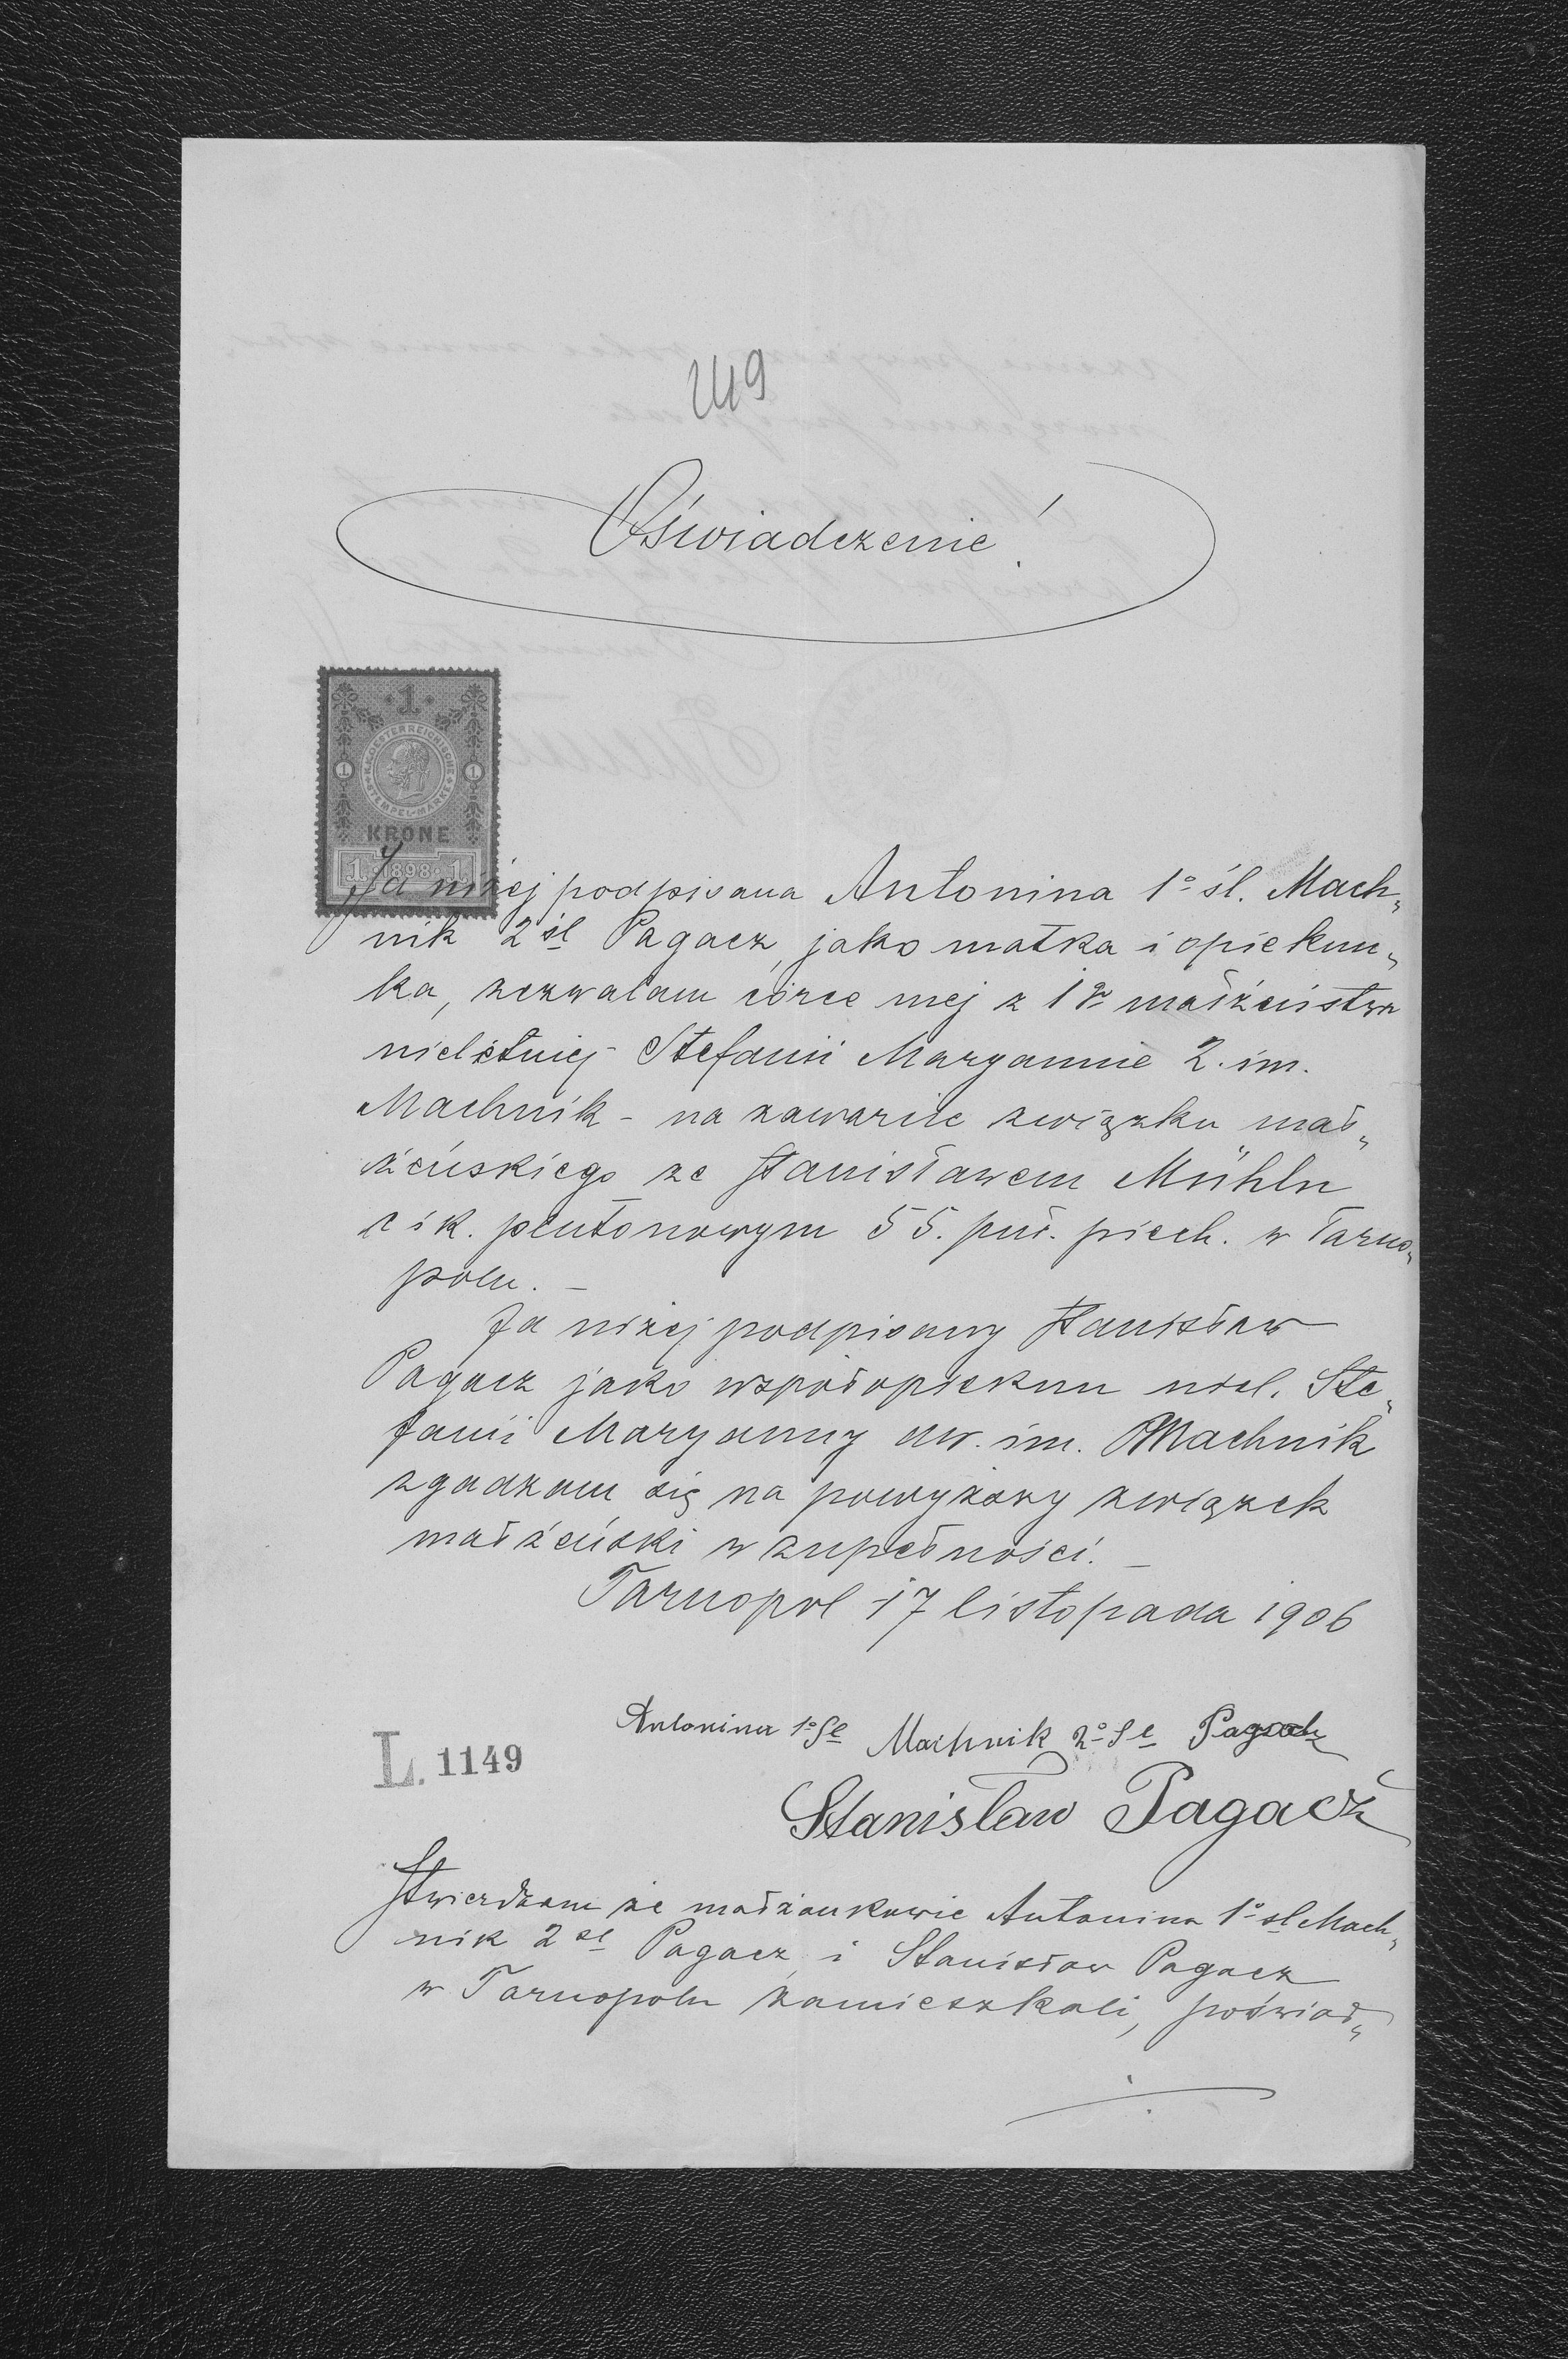 249
Oświadczenie!
1
K.K. OESTERREICHISCHE STEMPEL-MARKE
1 1
KRONE
1 1898 1
Ja niżej podpisana Antonina 1º śl. Mach„
nik 2 śl Pagacz, jako matka i opiekun„
ka, zezwalam córce mej z 1go małżeństwa
nieletniej Stefanii Maryannie 2. im.
Machnik - na zawarcie związku mał„
żeńskiego ze Stanisławem Mühln
c i k. plutonowym 55. puł. piech. w Tarno„
polu. –
Ja niżej podpisany Stanisław
Pagacz jako współopiekun niel. Ste„
fanii Maryanny dw. im. Machnik
zgadzam się na powyższy związek
małżeński w zupełności. –
Tarnopol 17 listopada 1906
Antonina 1º śl Machnik 2º śl Pagacz
L. 1149
Stanisław Pagacz
Stwierdzam że małżonkowie Antonina 1º śl Mach„
nik 2 śl Pagacz i Stanisław Pagacz
w Tarnopolu zamieszkali, poświad„